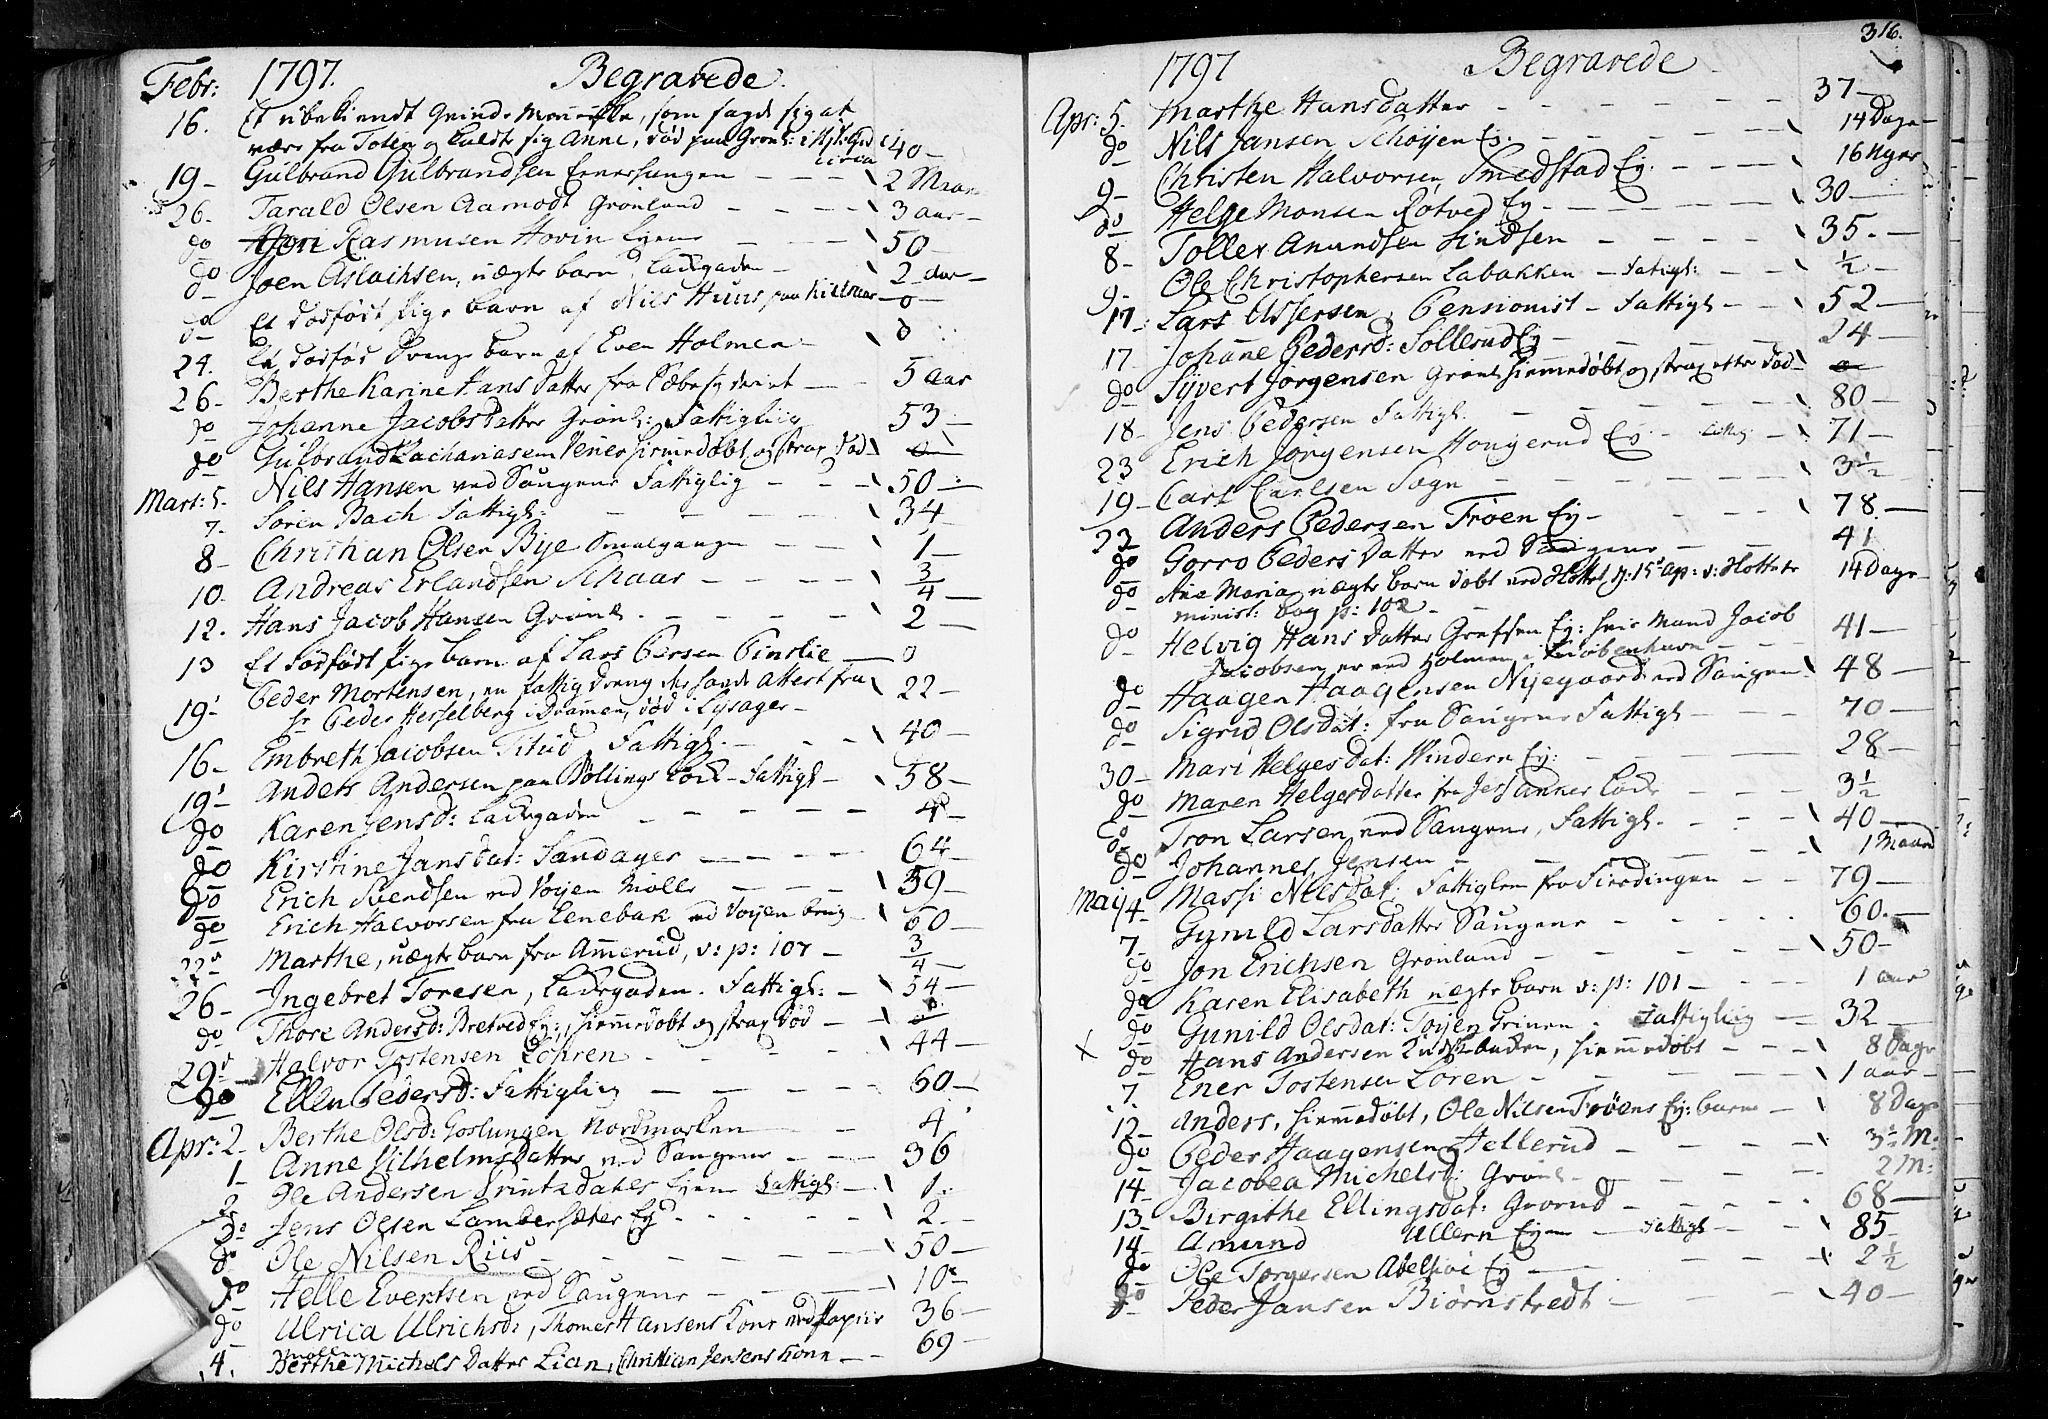 Febr: 1797. Begravede.
16. Et ubekiendt Qvinde Menniske, som sagde sig at
være fra Toten og kaldte sig Anne, død paa Grønl: circa 40 —
19 - Gulbrand Gulbrandsen — — — 2 Maan
26. Tarald Olsen Aamodt Grønland — — — 3 aar —
do Rasmusen Hovin Eyene — — 50 —
do Joen Aslachsen, uægte barn, Ladegaden — 2 aar —
do Et dødfødt Pige barn af Nils Huus paa — 0 —
24. Et dødfød Drenge barn af Even Holmen — 0
26 - Berthe Karine Hans Datter fra Sæbesyderiet — 5 aar
do Johanne Jacobs Datter Grønl: Fattiglig 53 —
do Gulbrand Zachariasen hiemmedøbt og strax død 0
Mart: 5. Nils Hansen ved Saugene Fattiglig — — 50 —
7. Søren Bach Fattigl. — — — 34
8 - Christian Olsen Bye Smalgangen — — 1 —
10. Andreas Erlandsen Schaar — — — 3/4 —
12. Hans Jacob Hansen Grønl. — — — 2 —
13 Et dødfødt Pige barn af Lars Persen — 0
19 - Peder Mortensen, en fattig dreng der havde Attest fra 22 —
Hr Peder Hesselberg i Drammen, død i Lysager —
16 - Embreth Jacobsen Fattigl. — — 40 —
19 - Anders Andersen paa Bøllings Løck - Fattigl — 58 —
do Karen Jensd: Ladegaden — — — 4 —
do Kirstine Jans Dat: Sandager — — — 64 —
do Erich Svendsen ved Vøyen Mølle — — — 59 —
do Erich Halvorsen fra Enebak ved Vøyen brug — 60 —
22 - Marthe, uægte barn fra Ammerud, v: p: 107 — 3/4 —
26 - Ingebret Toresen, Ladegaden. Fattigl: — 54 —
do Thore Andersd: Bretved Ey:, hiemmedøbt og strax død — 0
29 Halvor Tostensen Løhren — — — 44 —
do Ellen Pedersd: Fattiglig — — — 60 —
Apr: 2 - Berthe Olsd: Goslungen Nordmarken — — 4
1 - Anne Vilhelms Datter ved Saugene — — 36
2 Ole Andersen Eyene Fattigl: — 1.
do Jens Olsen Lambersæter Eyd — — — 2. —
do Ole Nilsen Riis — — — 50 —
do Helle Evertsen ved Saugene — — — 10 —
do Ulrica Ulrichsd:, Thomes Hansens Kone ved Papiir 36 —
Møllen
4. Berthe Michels Datter Lian, Christian Jensens Kone — — 69
316.
1797 Begravede
Apr: 5. Marthe Hansdatter — — — 37 —
do Nils Jansen Schøyen Ey: — — — 14 Dage —
9 - Christen Halvorsen, Smedstad Ey: — — — 16 Uger
do Helge Monsen Rotved Ey — — — 30 —
8 - Tollev Amundsen — — — 35. —
9 - Ole Christophersen Labakken — Fatigl: — 1/2 —
17: Lars Assersen, Pensionist — Fattigl — — 52 —
17 - Johanne Pedersd: Sollerud Ey — — — 24 —
do Syvert Jørgensen Grønl hiemmedøbt og strax efter død — 0
18 - Jens Pedersen Fattigl. — — — 80 —
23 Erich Jørgensen Hougerud Ey: — — 71 —
19 - Carl Carlsen Sogn — — — 3 1/2
22 Anders Pedersen Trøen Ey — — — 78 —
do Gorro Peders Datter ved Saugene — — 41
do Ane Maria uægte barn døbt ved d: 15 Ap: v: 14 Dage —
minist: bog p: 102 —
do Helvig Hans Datter Grefsen Ey: hvis Mand Jacob 41 —
Jacobsen er ved Holmen i Kiøbenhavn —
do Haagen Haagensen Nyegaard ved Saugen. 48 —
do Sigrid Olsdat: fra Saugene Fattigl — — — 70 —
30 - Mari Helges Dat: Vindern Ey: — — — 28 —
do Maren Helgesdatter fra — — — 3 1/2
do Tron Larsen ved Saugene, Fattigl. — — — 40 —
do Johannes Jensen — — — 1 Maand
May 4 - Massi Nilsdat: Fattiglem fra Fierdingen — — 79 —
7 - Gunild Larsdatter Saugene — — — 60. —
do Jon Erichsen Grønland — — — 50 —
do Karen Elisabeth uægte barn v: p: 101 — — — 1 aar
do Gunild Olsdat: Tøyen Grinien — Fattiglig — 32 —
X do Hans Andersen, hiemmedøbt — — — 8 Dage
7. Ener Tostensen Løren — — — 1 aar —
12 - Anders, hiemmedøbt, Ole Nilsen Trøens Ey: barn — 8 Dage
do Peder Haagensen Hellerud — — — 3 1/2 M:
14 - Jacobea Michelsd: Grønl — — — 2 M:
13 - Birgithe Ellingsdat: Grorud — — — 68 —
14 - Amund Ullern Eyene — Fattigl — — 85 —
do Ole Torgersen Abelsøe Ey — — — 2 1/2
do Peder Jansen Biørnstredt — — — 40 —